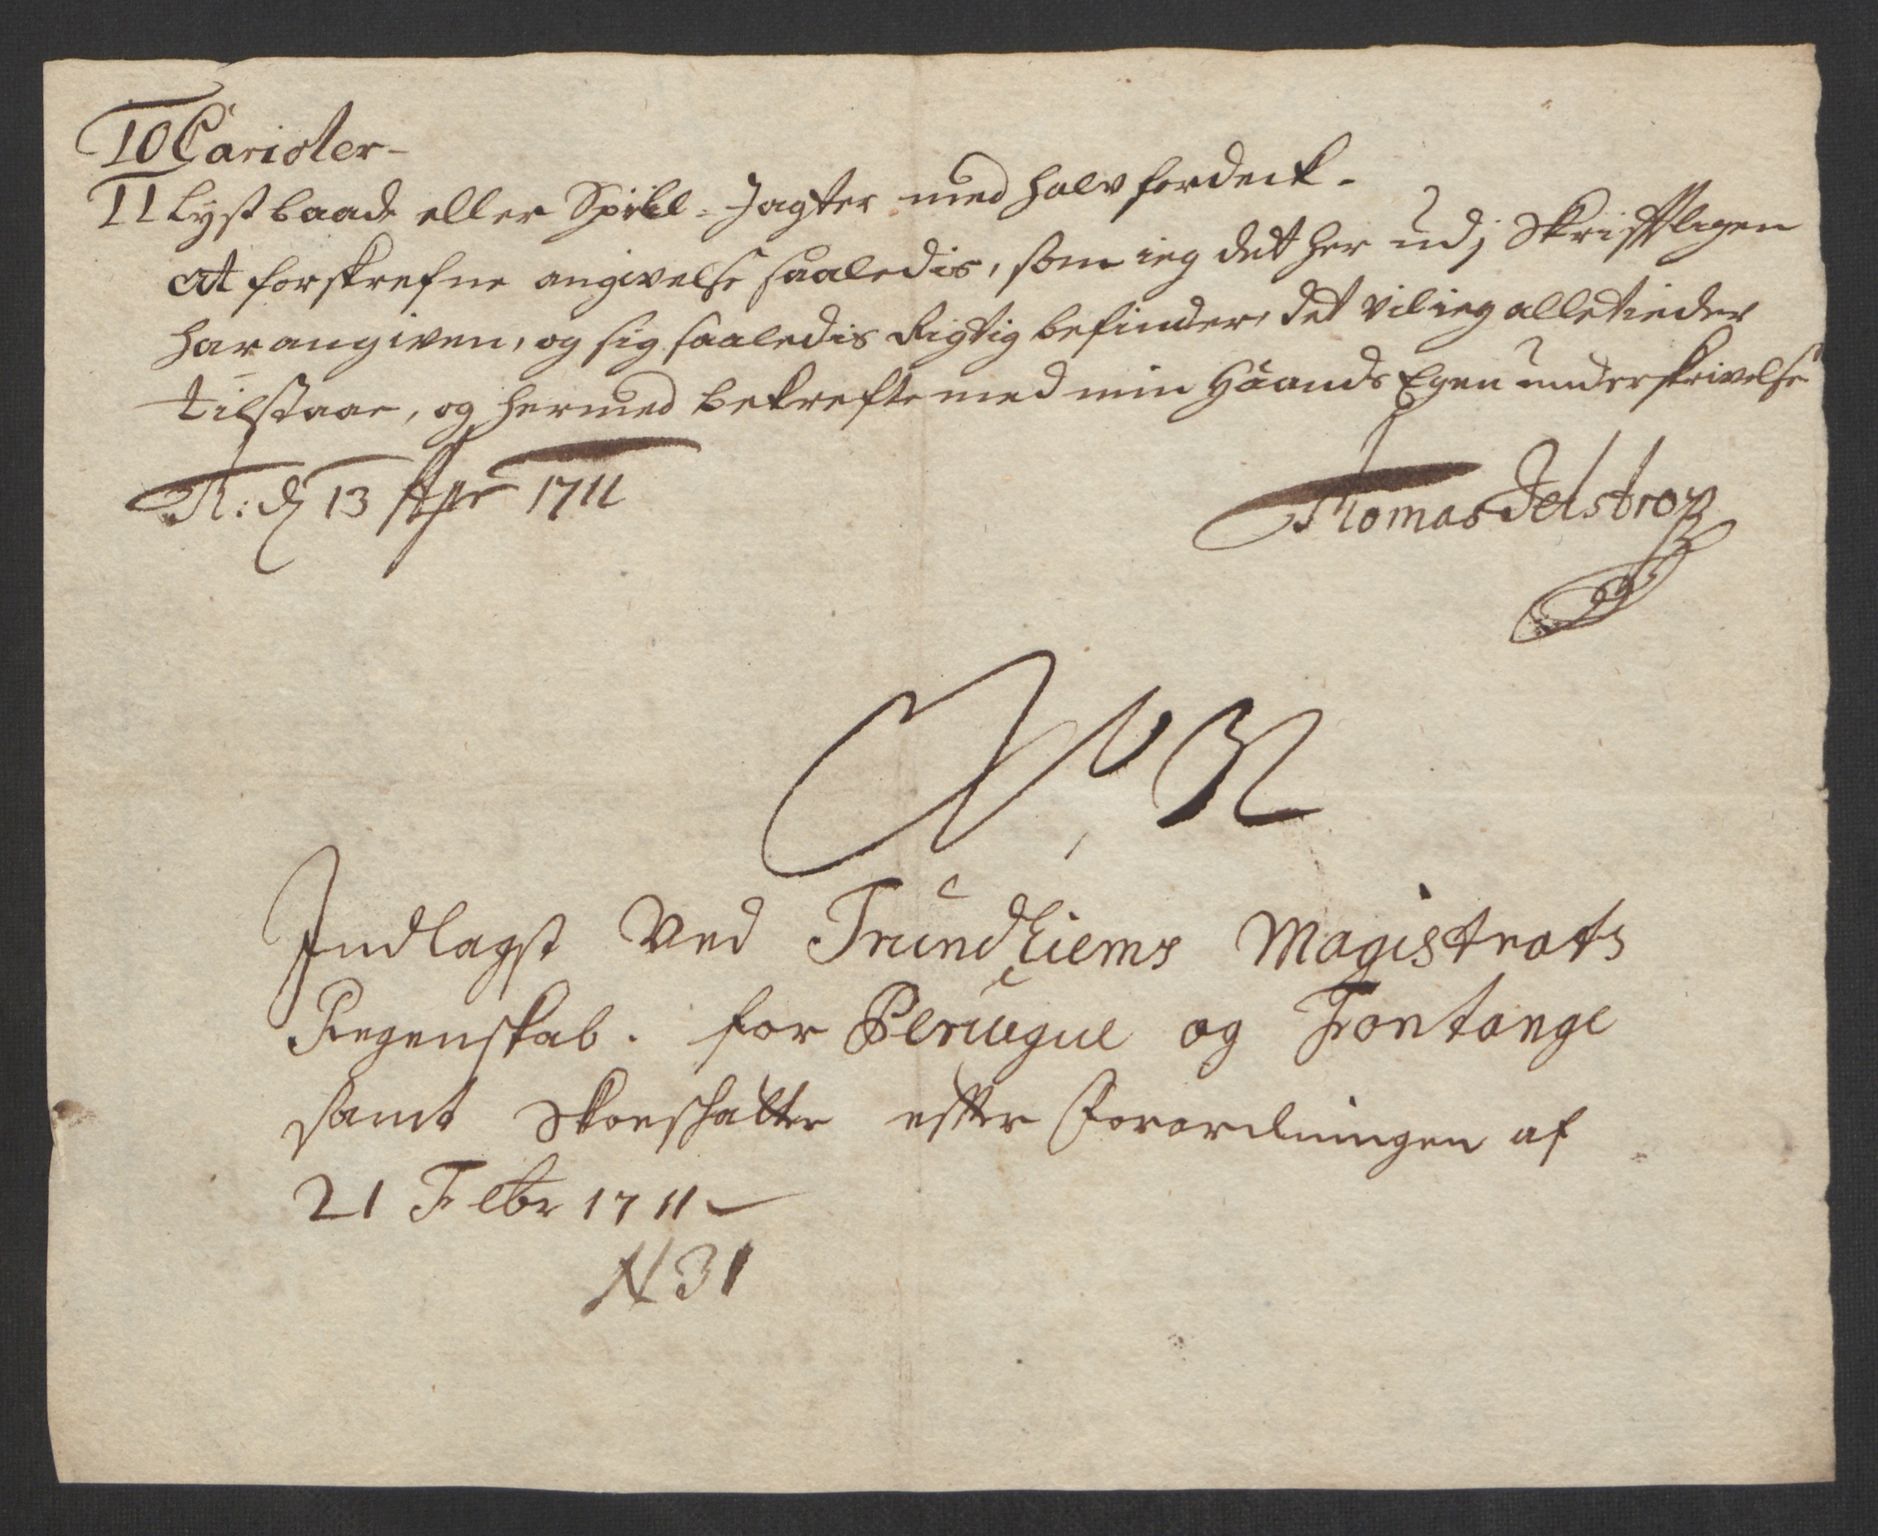 10 Carioler-
11 Lystbaade eller Spill-Jagter med halv fordeck-
At forskrefne angivelse saaledis, som ieg det her udj Skrifftligen
har angiven, og sig saaledis Rigtig befinder, det vil ieg alletieder
tilstaae, og hermed bekrefte med min Haands Egen underskrivelse
T: d 13 Apr 1711
Thomas
No 32
Indlagt Ved Trundhiems Magistrats
Regenskab. for Peruque og Fontange
samt Skoeschatter efter Forordningen af
21 Febr 1711
N 31